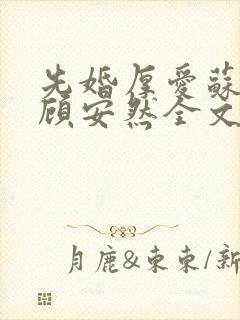 先婚厚愛蘇
顧安然全文
月鹿&東東/新